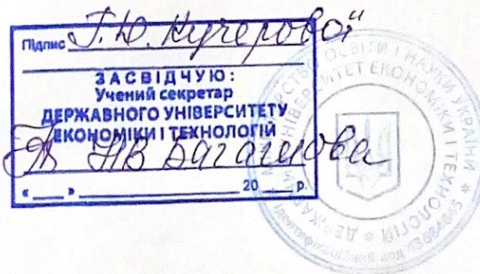 Підпис Г.Ю. Кучерової
ЗАСВІДЧУЮ:
Учений секретар
ДЕРЖАВНОГО УНІВЕРСИТЕТУ
ЕКОНОМІКИ І ТЕХНОЛОГІЙ
НВ
« » 20 р.
МІНІСТЕРСТВО ОСВІТИ І НАУКИ УКРАЇНИ
ДЕРЖАВНИЙ УНІВЕРСИТЕТ ЕКОНОМІКИ І ТЕХНОЛОГІЙ